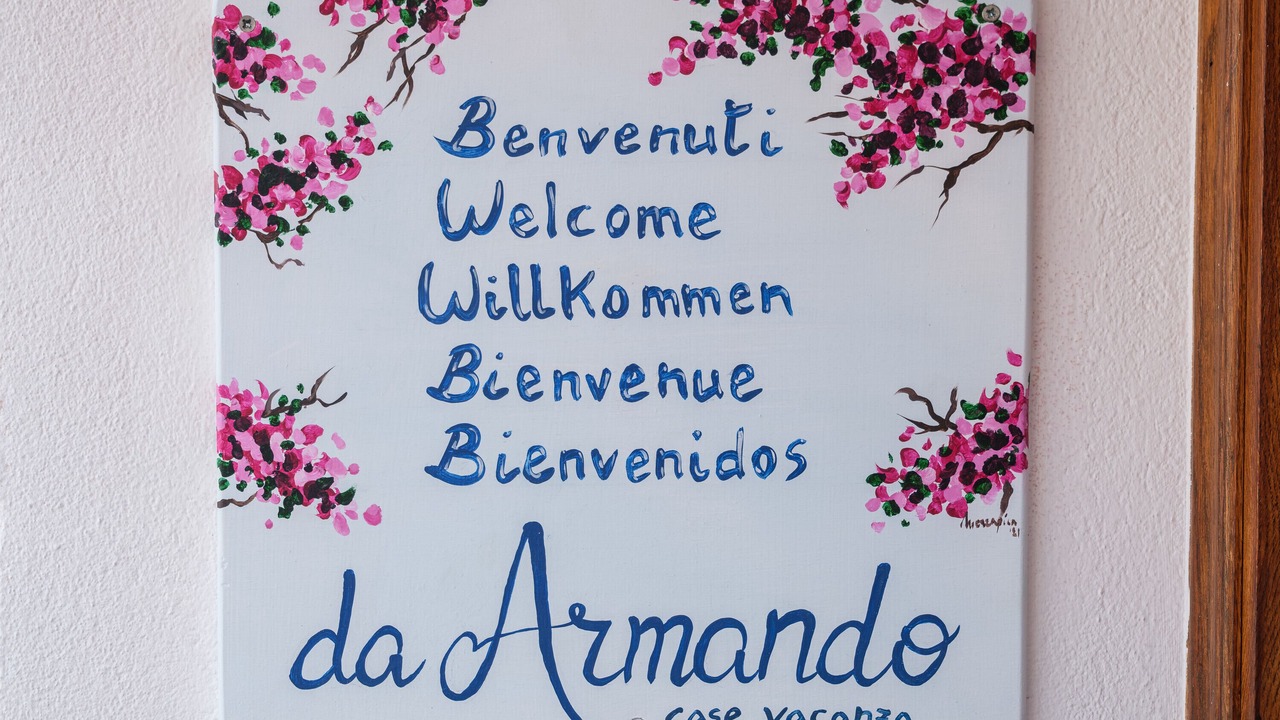 Benvenuti
Welcome
Willkommen
Bienvenue
Bienvenidos
da Armando
case vacanza